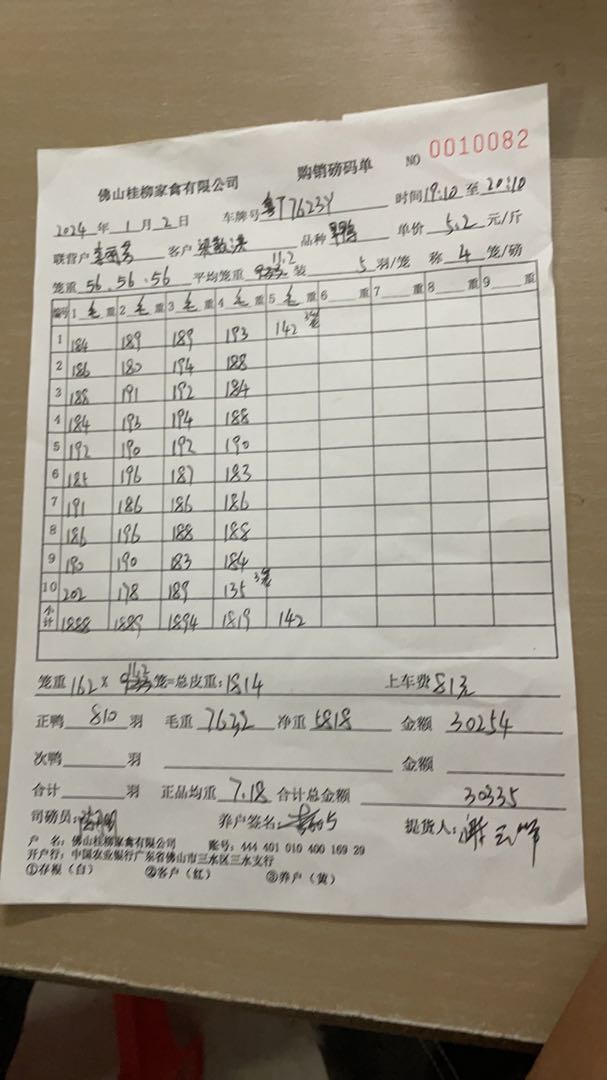 佛山桂柳家禽有限公司 购销磅码单 NO 0010082
2024年1月2日 车牌号粤T7623Y 时间19:10至20:10
联营户 客户 品种 单价5.2元/斤
笼重56.56.56 平均笼重11.2 装5羽/笼 称4笼/磅
编号 1毛重 2毛重 3毛重 4毛重 5毛重 6重 7重 8重 9重
1 184 189 189 193 142 3笼
2 186 180 194 188
3 188 191 192 184
4 184 193 194 188
5 192 190 192 190
6 185 196 187 183
7 191 186 186 186
8 186 196 188 188
9 190 190 183 184
10 202 178 189 135 3笼
小计 1888 1889 1894 1819 142
笼重162×11.2笼=总皮重:1814 上车费81元
正鸭810羽 毛重7632 净重5818 金额30254
次鸭 羽 金额
合计 羽 正品均重7.18 合计总金额30335
司磅员: 养户签名: 提货人:
户 名:佛山桂柳家禽有限公司 账号:444 401 010 400 169 29
开户行:中国农业银行广东省佛山市三水区三水支行
①存根(白) ②客户(红) ③养户(黄)